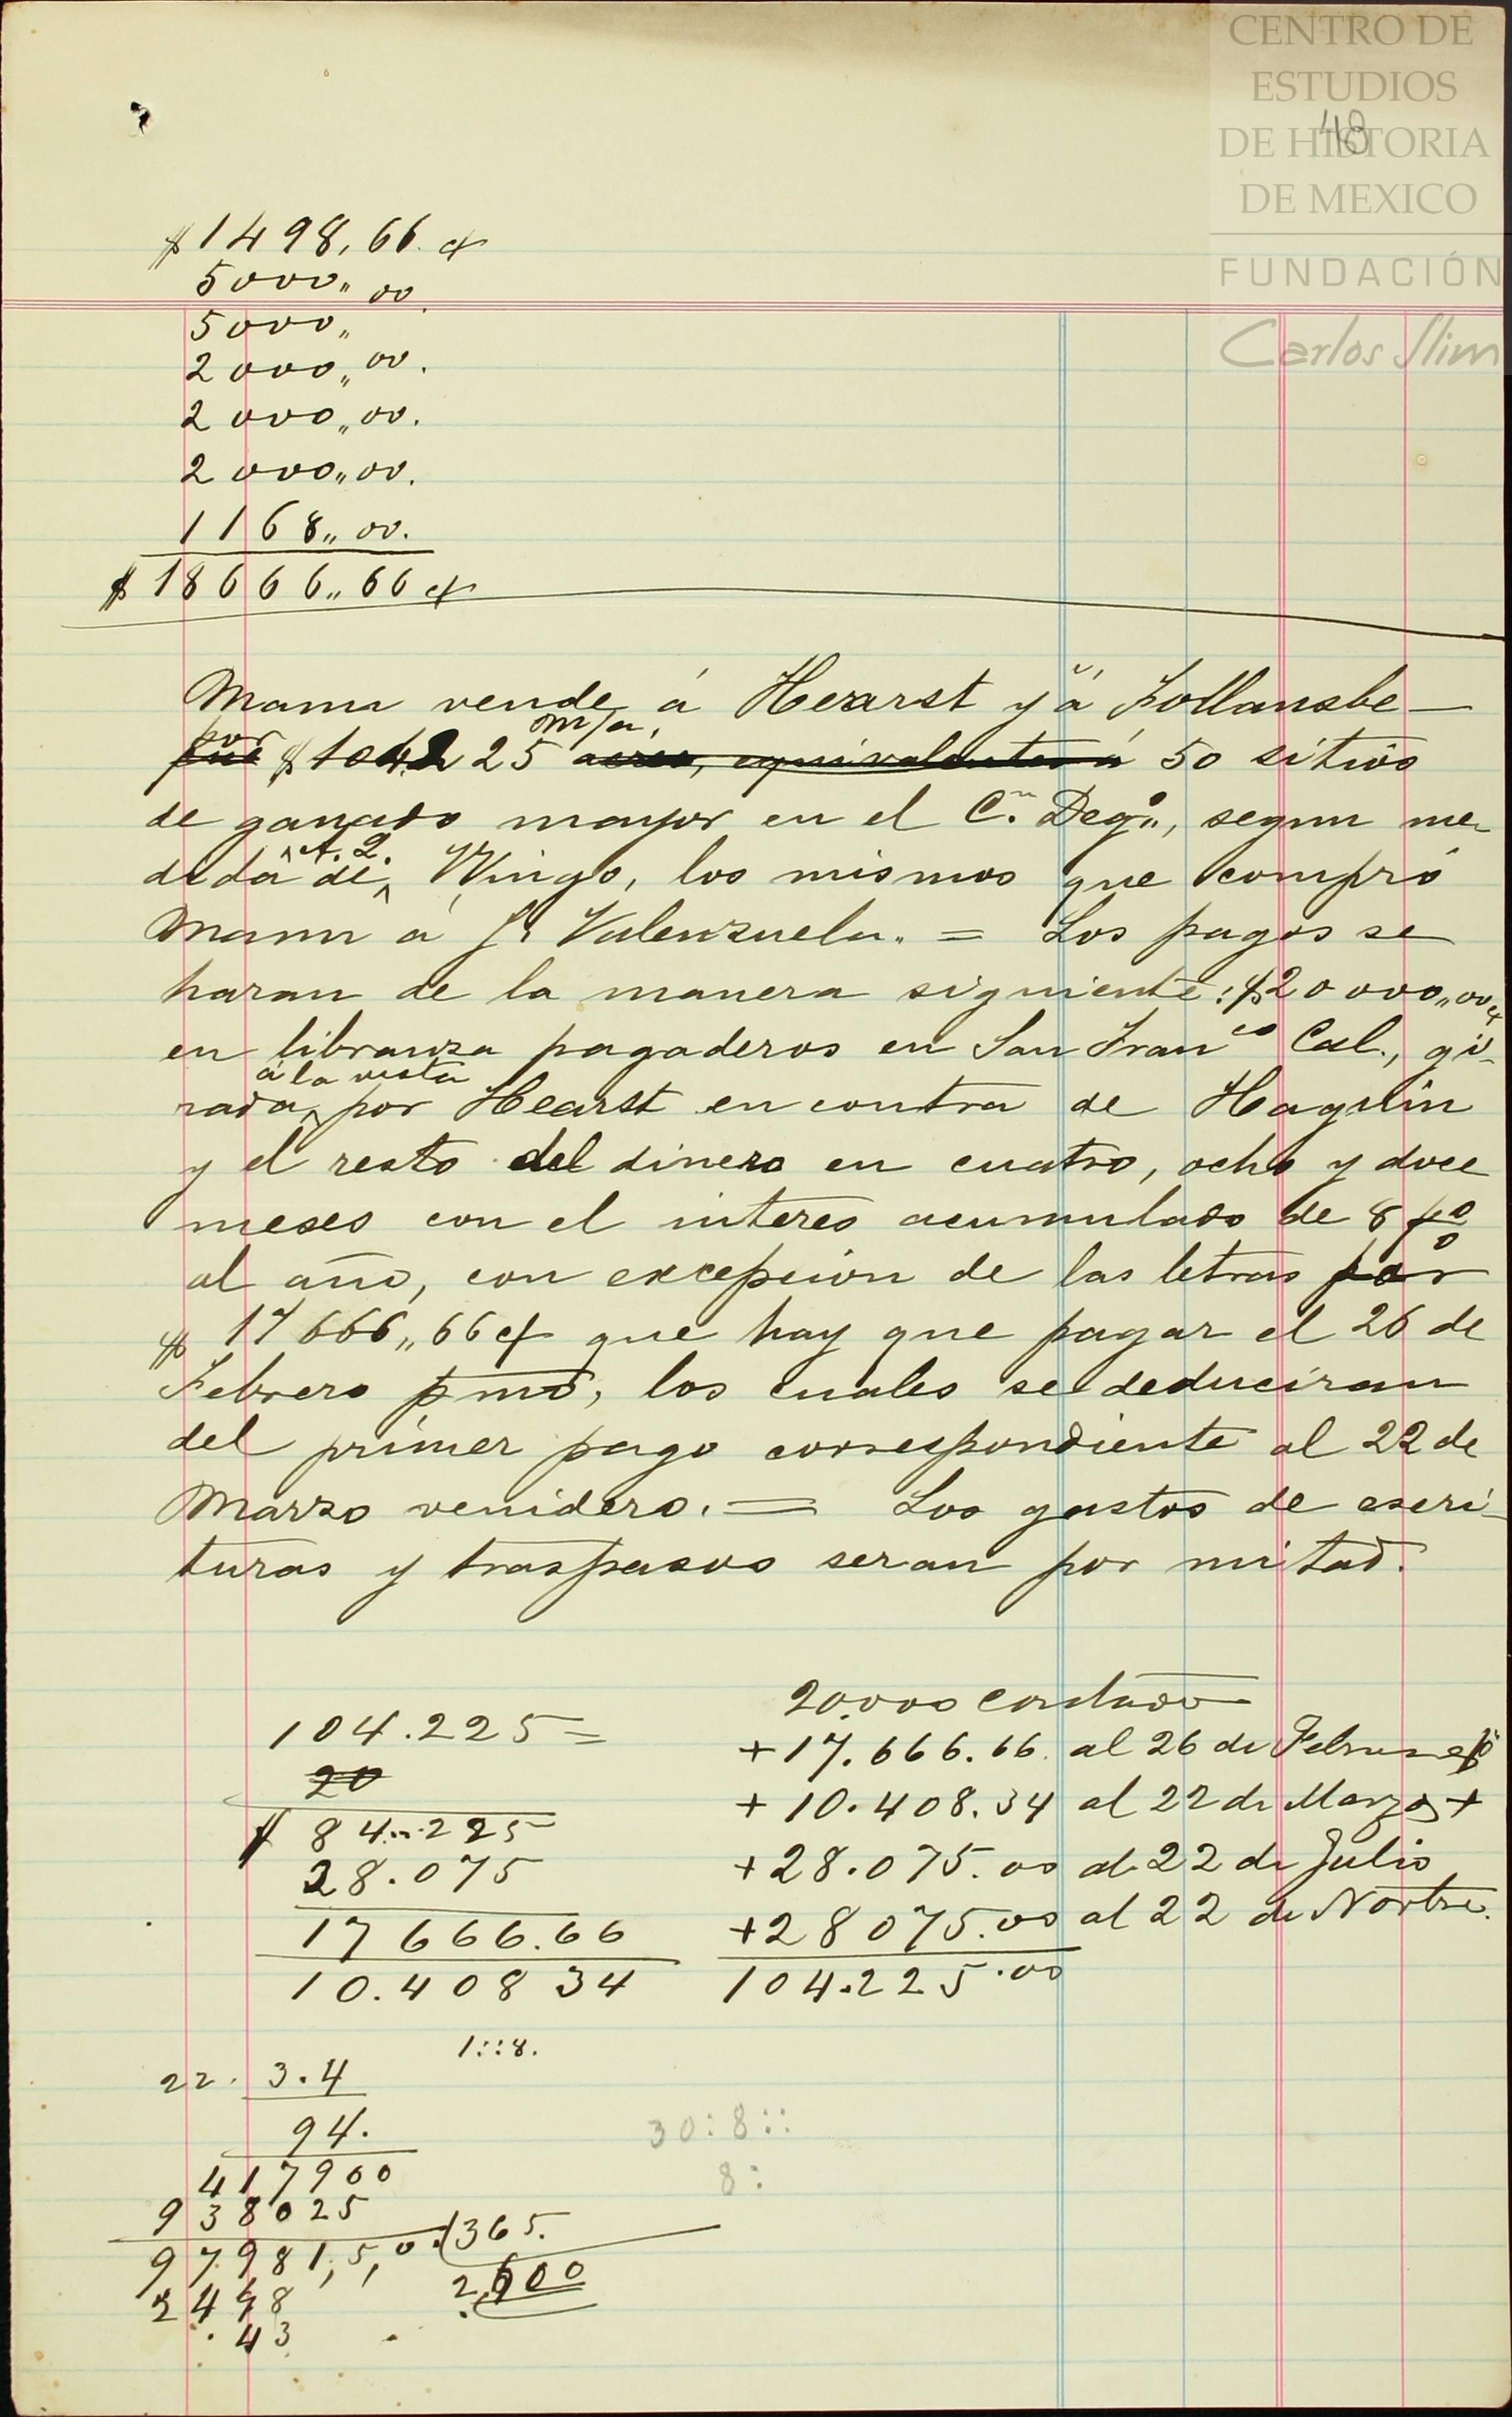 CENTRO DE
ESTUDIOS
DE HISTORIA
DE MEXICO
FUNDACIÓN
Carlos Slim
48
$1498,66. c/
5000,, 00.
5000,,
2000,,00.
2000,,00.
2000,,00.
1168,,00.
$18666,,66 c/
Mann vende á Hearst y á Follansbe—
por $104225 m/a, acres, equivalentes á 50 sitios
de ganado mayor en el C.n Deg.o, segun me-
dida de A. Q. Wingo, los mismos que compró
Mann á J. Valenzuela. = Los pagos se
haran de la manera siguiente: $20000,,00 c/
en libranza pagaderos en San Fran.co Cal., gi-
rada á la vista por Hearst en contra de Haguin
y el resto del dinero en cuatro, ocho y doce
meses con el interes acumulado de 8 p%
al año, con excepcion de las letras por
$ 17666,,66 c/ que hay que pagar el 26 de
Febrero pmo, los cuales se deduciran
del primer pago correspondiente al 22 de
Marzo venidero. = Los gastos de escri-
turas y traspasos seran por mitad.
20.000 Contado
104.225=
+17.666.66 al 26 de Febrero
20
+ 10.408.34 al 22 de Marzo +
$ 84...225
+28.075.00 al 22 de Julio
28.075
+28075.00 al 22 de Novbre.
17666.66
104.225.00
10.408 34
1::8.
22. 3.4
94.
30:8::
8:
417900
938025
97981,5,0. 365.
2448
43